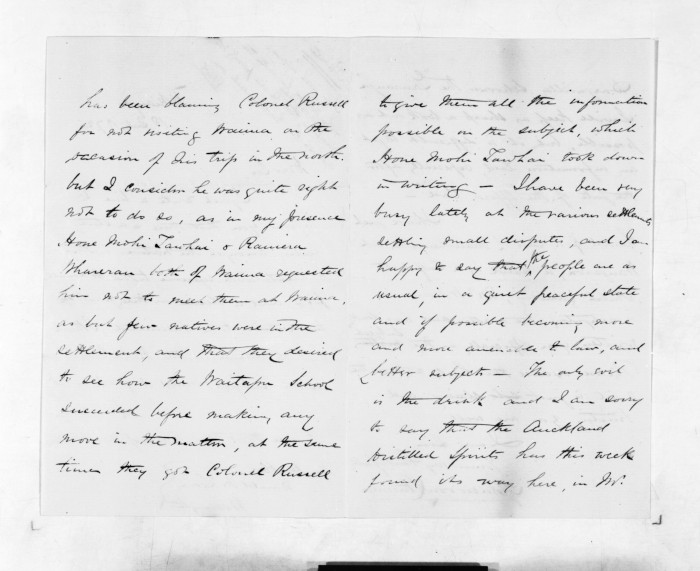 has been blaming Colonel Russell
for not visiting Waima, on the
occasion of his trip in the north.
but I consider he was quite right
not to do so, as in my presence
Hone Mohi Tawhai & Raniera
Wharerau both of Waima requested
him not to meet them at Waima,
as but few natives were in the
settlement, and that they desired
to see how the Waitapu School
succeeded before making any
move in the matter, at the same
time they got Colonel Russell
to give them all the information
possible on the subject, which
Hone Mohi Tawhai took down
in writing — I have been very
busy lately at the various settlements
settling small disputes, and I am
happy to say that the people are as
usual, in a quiet peaceful state
and if possible becoming more
and more amenable to law, and
better subjects — The only evil
is the drink and I am sorry
to say that the Auckland
distilled Spirits has this week
found its way here, in Mr.